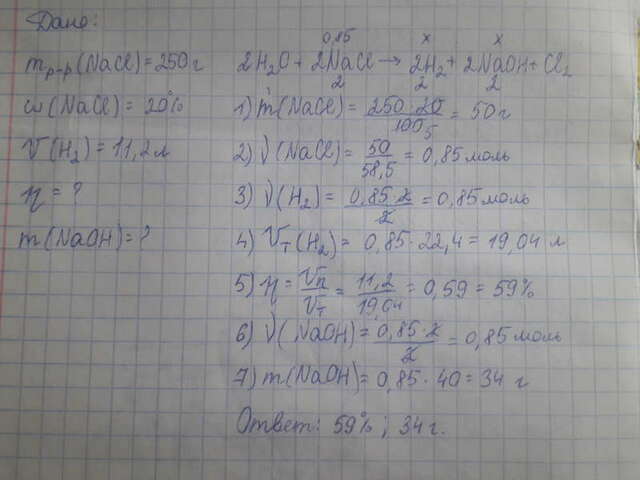 Дано:
m р-р (NaCl) = 250 г
ω (NaCl) = 20%
V (H₂) = 11,2 л
η = ?
m (NaOH) = ?
0,85 x x
2H₂O + 2NaCl → 2H₂ + 2NaOH + Cl₂
2 2 2
1) m (NaCl) = 250 · 20 / 100 5 = 50 г
2) ν (NaCl) = 50 / 58,5 = 0,85 моль
3) ν (H₂) = 0,85 · 2 / 2 = 0,85 моль
4) Vт (H₂) = 0,85 · 22,4 = 19,04 л
5) η = Vп / Vт = 11,2 / 19,04 = 0,59 = 59%
6) ν (NaOH) = 0,85 · 2 / 2 = 0,85 моль
7) m (NaOH) = 0,85 · 40 = 34 г
Ответ: 59% ; 34 г.